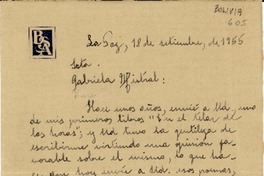 BOLIVIA
605
BSA
La Paz, 18 de setiembre, de 1955
Srta.
Gabriela Mistral:
Hace unos años, envié a Ud. uno
de mis primeros libros "En el telar de
las horas"; y Ud. tuvo la gentileza de
escribirme virtiendo una opinión fa-
vorable sobre el mismo, lo que ha-
hoy envío a Ud. esos poemas,